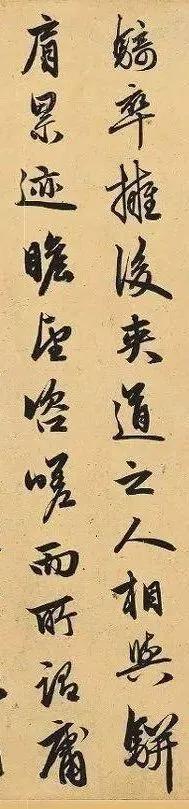 騎卒擁後夾道之人相與駢
肩累迹瞻望咨嗟而所謂庸